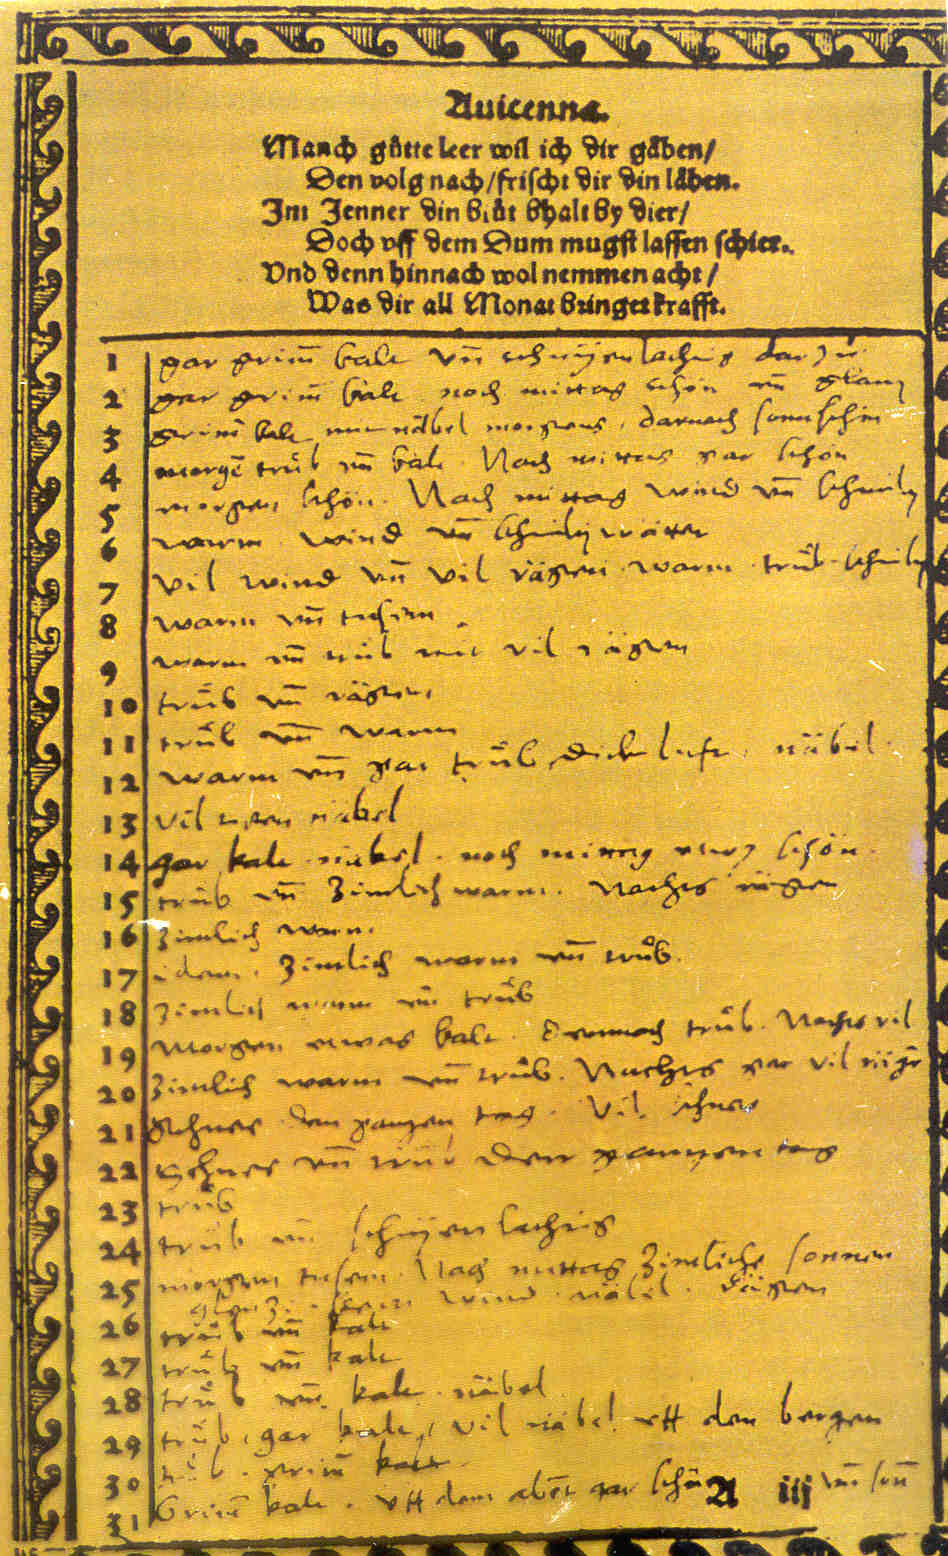 Auicenna.
Manch gůtte leer wil ich dir gåben/
Den volg nach/frischt dir din låben.
Im Jenner din blůt bhalt by dier/
Doch vff dem Dum mugst lassen schier.
Vnd denn hinnach wol nemmen acht/
Was dir all Monat bringet krafft.
1 gar grim̄ kalt vn̄
2 gar grim̄ kalt noch mittag schön vn̄ glantz
3 grim̄ kalt näbel morgens. darnach sonnschin
4 morgē trüb vn̄ kalt. Nach mittag gar schön
5 morgen schön. Nach mittag wind vn̄
6 warm. wind vn̄
7 vil wind vn̄ vil rägen. warm. trüb.
8 warm vn̄
9 warm vn̄ trüb mit vil rägen
10 trüb vn̄ rägen
11 trüb vn̄ warm
12 warm vn̄ gar trüb dick luft. näbel.
13 vil näbel
14 gar kalt. näbel. noch mittag schön.
15 trüb vn̄ zimlich warm. Nachts rägen
16 zimlich warm.
17 idem. zimlich warm vn̄ trüb.
18 zimlich warm vn̄ trüb
19 Morgen etwas kalt. Darnach trüb. Nachts vil
20 zimlich warm vn̄ trüb. Nachts gar vil
21 Schnee den gantzen tag. Vil schnee
22 Schnee vn̄ trüb den gantzen tag
23 trüb
24 trüb vn̄
25 morgen Nach mittag zimliche sonnen
wind. näbel. Rägen
26 trüb vn̄ kalt
27 trüb vn̄ kalt
28 trüb vn̄ kalt. näbel
29 trüb, gar kalt, vil näbel vff den bergen
30 trüb. grim̄ kalt.
31 Grim̄ kalt. vff den abēt gar schön vn̄
A iij